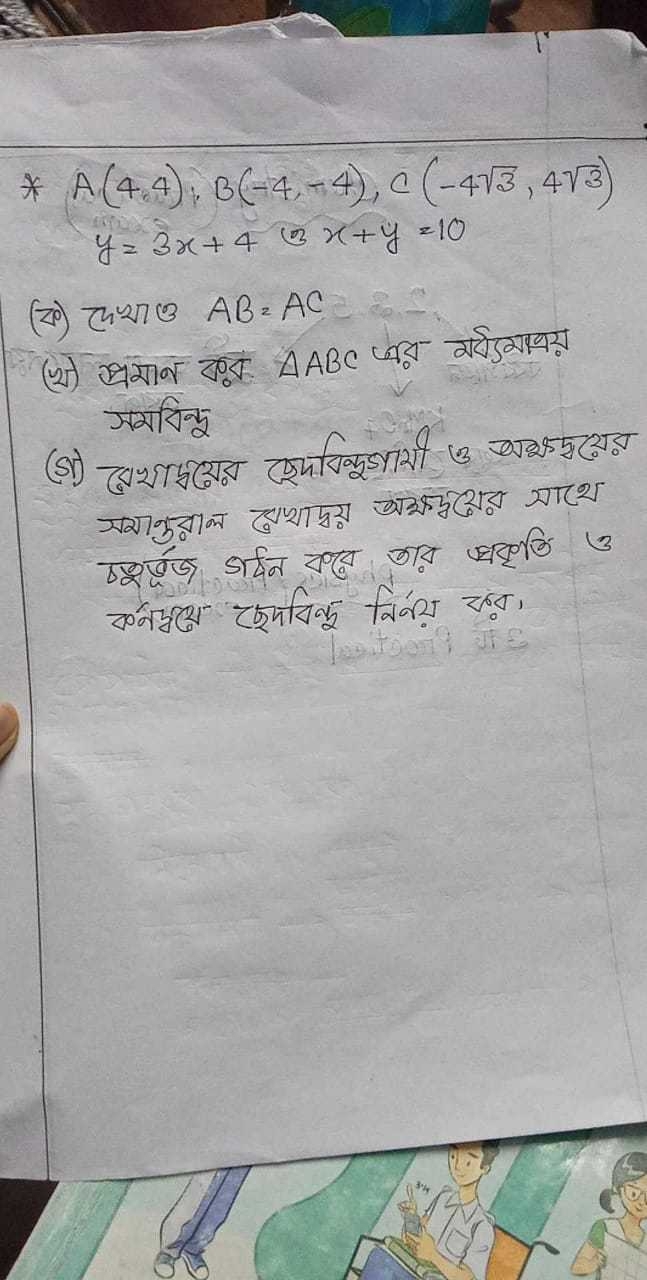 * A(4,4), B(-4,-4), C(-4√3, 4√3)
y = 3x + 4 ও x+y =10
(ক) দেখাও AB = AC
(খ) প্রমান কর ΔABC এর মধ্যমাত্রয়
সমবিন্দু
(গ) রেখাদ্বয়ের ছেদবিন্দুগামী ও অক্ষদ্বয়ের
সমান্তরাল রেখাদ্বয় অক্ষদ্বয়ের সাথে
চতুর্ভূজ গঠন করে তার প্রকৃতি ও
কর্নদ্বয়ে ছেদবিন্দু নির্নয় কর।